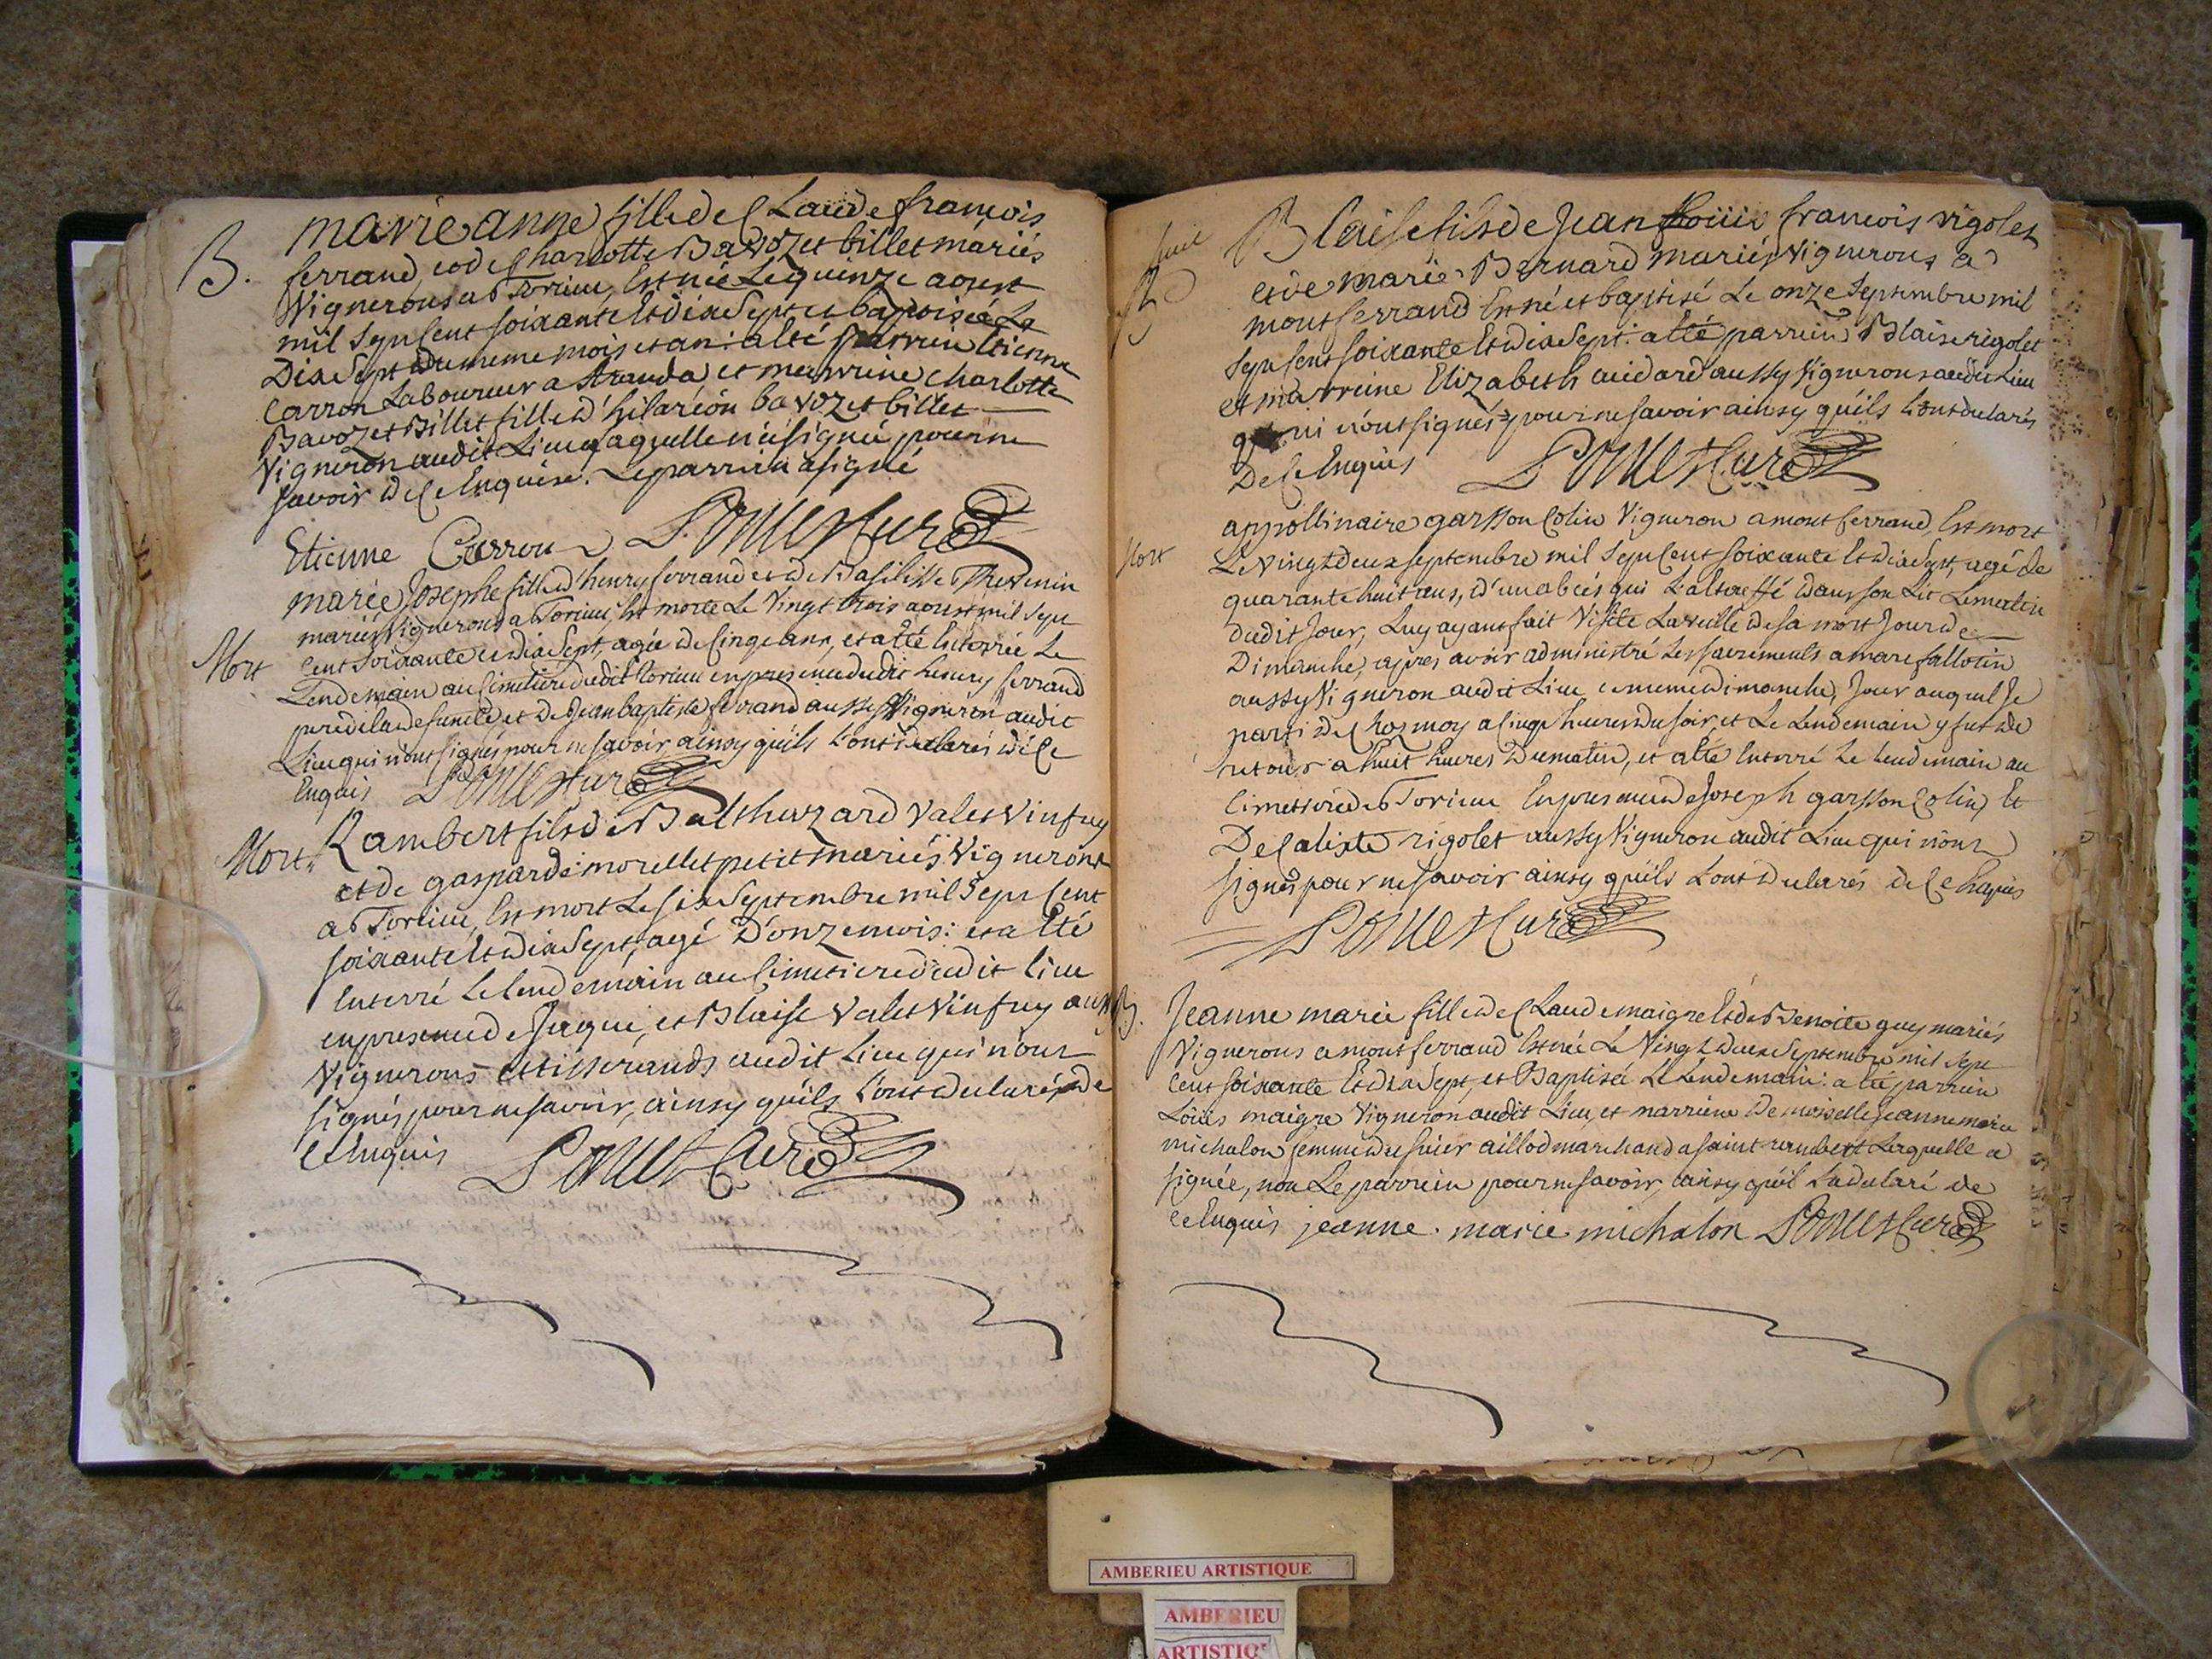 B. marie anne fille de Claude francois
ferrand, et de Charlotte Bavozet billet mariés
Vignerons a Torcieu, Est née Le quinze aoust
mil Sept Cent soixante Et dix Sept et baptisée Le
Dix Sept du meme mois et an: a été parrein Etienne
Carron Laboureur a Aranda et marreine Charlotte
Bavozet Billet fille d'hilarion bavozet billet
Vigneron audit Lieu Laquelle n'a signé pour ne
savoir de Ce Enquise. Le parrein a signé
Etienne Carron Ponset Curé
marie Josephe fille d'henry ferrand et de Basilisse Thevenin
mariés Vignerons a Torcieu, Est morte Le Vingt trois aoust mil Sept
Mort Cent Soixante et dix Sept, agée de Cinq ans, et a été Enterrée Le
Lendemain au Cimetiere dudit torcieu en presence dudit henry ferrand
pere de la defuncte et de Jean baptiste ferrand aussy Vigneron audit
Lieu qui n'ont signés pour ne savoir ainsy qu'ils L'ont declarés de Ce
Enquis Ponset Curé
Mort. Rambert fils de Balthazard Valet Vinfray
et de gasparde morellet petit mariés Vignerons
a Torcieu, Est mort Le six Septembre mil Sept Cent
soixante Et dix Sept, agé D'onze mois: et a Eté
Enterré Le lendemain au Cimetiere dudit lieu
en presence de Jaque, et Blaise Valet Vinfray aussy
Vignerons et tisserands audit Lieu qui n'ont
signés pour ne savoir, ainsy qu'ils L'ont declarés de
Ce Enquis Ponset Curé
B Blaise fils de Jean francois rigolet
et de marie Bernard mariés Vignerons a
montferrand Est né et baptisé Le onze Septembre mil
Sept Cent soixante Et dix Sept: a eté parrein Blaise rigolet
et marreine Elizabeth aussy Vignerons audit Lieu
qui n'ont signés pour ne savoir ainsy qu'ils L'ont declarés
De Ce Enquis Ponset Curé
appollinaire garsson Colin Vigneron a montferrand, Est mort
Mort Le Vingt deux septembre mil Sept Cent soixante Et dix Sept, agé de
quarante huit ans, d'un abcès qui L'a Etouffé dans son Lit Le matin
dudit Jour, Luy ayant fait Visite La veille de sa mort Jour de
Dimanche, apres avoir administré Les sacrements a marc fallotin
aussy Vigneron audit Lieu ce meme dimanche, Jour auquel Je
parti de Chez moy a Cinq heures du soir, et Le Lendemain y fut de
retour a huit heures Du matin, et a eté Enterré Le Lendemain au
Cimettiere de Torcieu En presence de Joseph garsson Colin, Et
De Calixte rigolet aussy Vigneron audit Lieu qui n'ont
signés pour ne savoir ainsy qu'ils L'ont declarés de Ce Enquis
Ponset Curé
B. Jeanne marie fille de Claude maigre Et de Benoite guy mariés
Vignerons a montferrand Est née Le Vingt deux Septembre mil Sept
Cent soixante Et dix Sept, et Baptisée Le Lendemain: a été parrein
Loüis maigre Vigneron audit Lieu, et marreine Demoiselle Jeanne marie
michalon femme du sieur aillod marchand a saint rambert Laquelle a
signée, non Le parrein pour ne savoir, ainsy qu'il L'a declaré de
Ce Enquis jeanne. marie michalon Ponset Curé
AMBERIEU ARTISTIQUE
AMBERIEU
ARTISTIQ